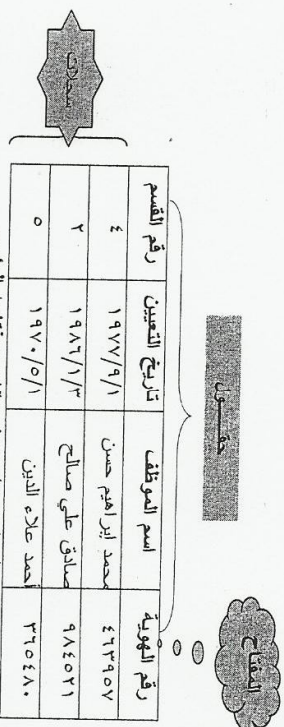 حقول
المفتاح
سجلات
رقم الهوية اسم الموظف تاريخ التعيين رقم القسم
٤٦٣٩٥٧ محمد ابراهيم حسن ١٩٧٧/٩/١ ٤
٩٨٤٥٢١ صادق علي صالح ١٩٨٦/١/٣ ٢
٣٦٥٤٨٠ أحمد علاء الدين ١٩٧٠/٥/١ ٥